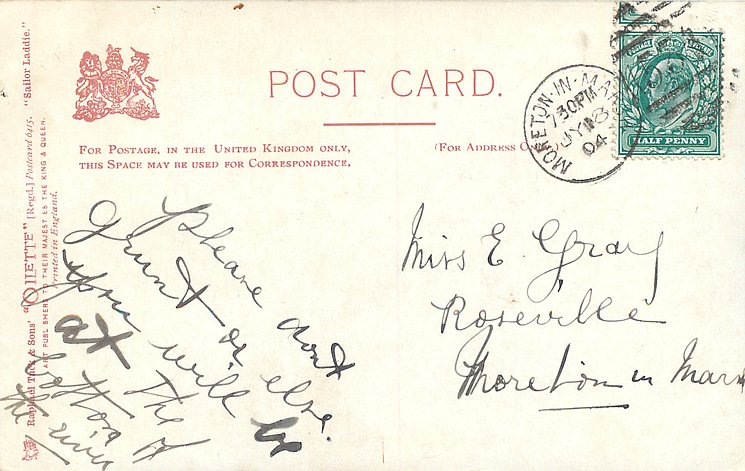 POST CARD.
FOR POSTAGE, IN THE UNITED KINGDOM ONLY,
THIS SPACE MAY BE USED FOR CORRESPONDENCE.
(FOR ADDRESS ON
MORETON-IN-MA
730PM
JY 3
04
HALF PENNY
Please dont
grunt or else
you will be
at the
bottom of
the river
Miss E. Gray
Roseville
Moreton in Mars
Raphael Tuck & Sons' "OILETTE" [Regd.] Postcard 6415. "Sailor Laddie."
ART PUBLISHERS TO THEIR MAJESTIES THE KING & QUEEN.
Printed in England.